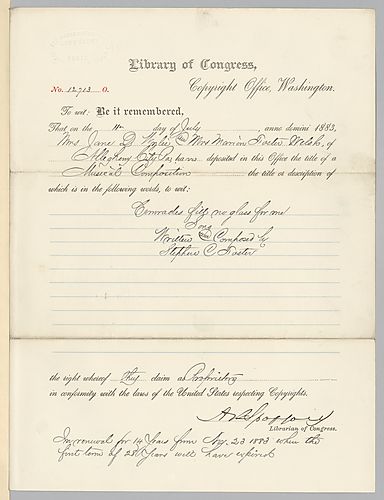 Library of Congress,
No. 12713 O. Copyright Office, Washington.
To wit: Be it remembered,
That on the 11th day of July anno domini 1883,
Mrs Jane D. Wylie and Mrs Marion Foster Welsh, of
Allegheny City Pa, have deposited in this Office the title of a
Musical Composition the title or description of
which is in the following words, to wit:
Comrades fill no glass for me
Song
Written and Composed by
Stephen C. Foster
the right whereof they claim as Proprietors
in conformity with the laws of the United States respecting Copyrights.
A R Spofford
Librarian of Congress.
In renewal for 14 Years from Nov. 23 1883 when the
first term of 28 Years will have expired